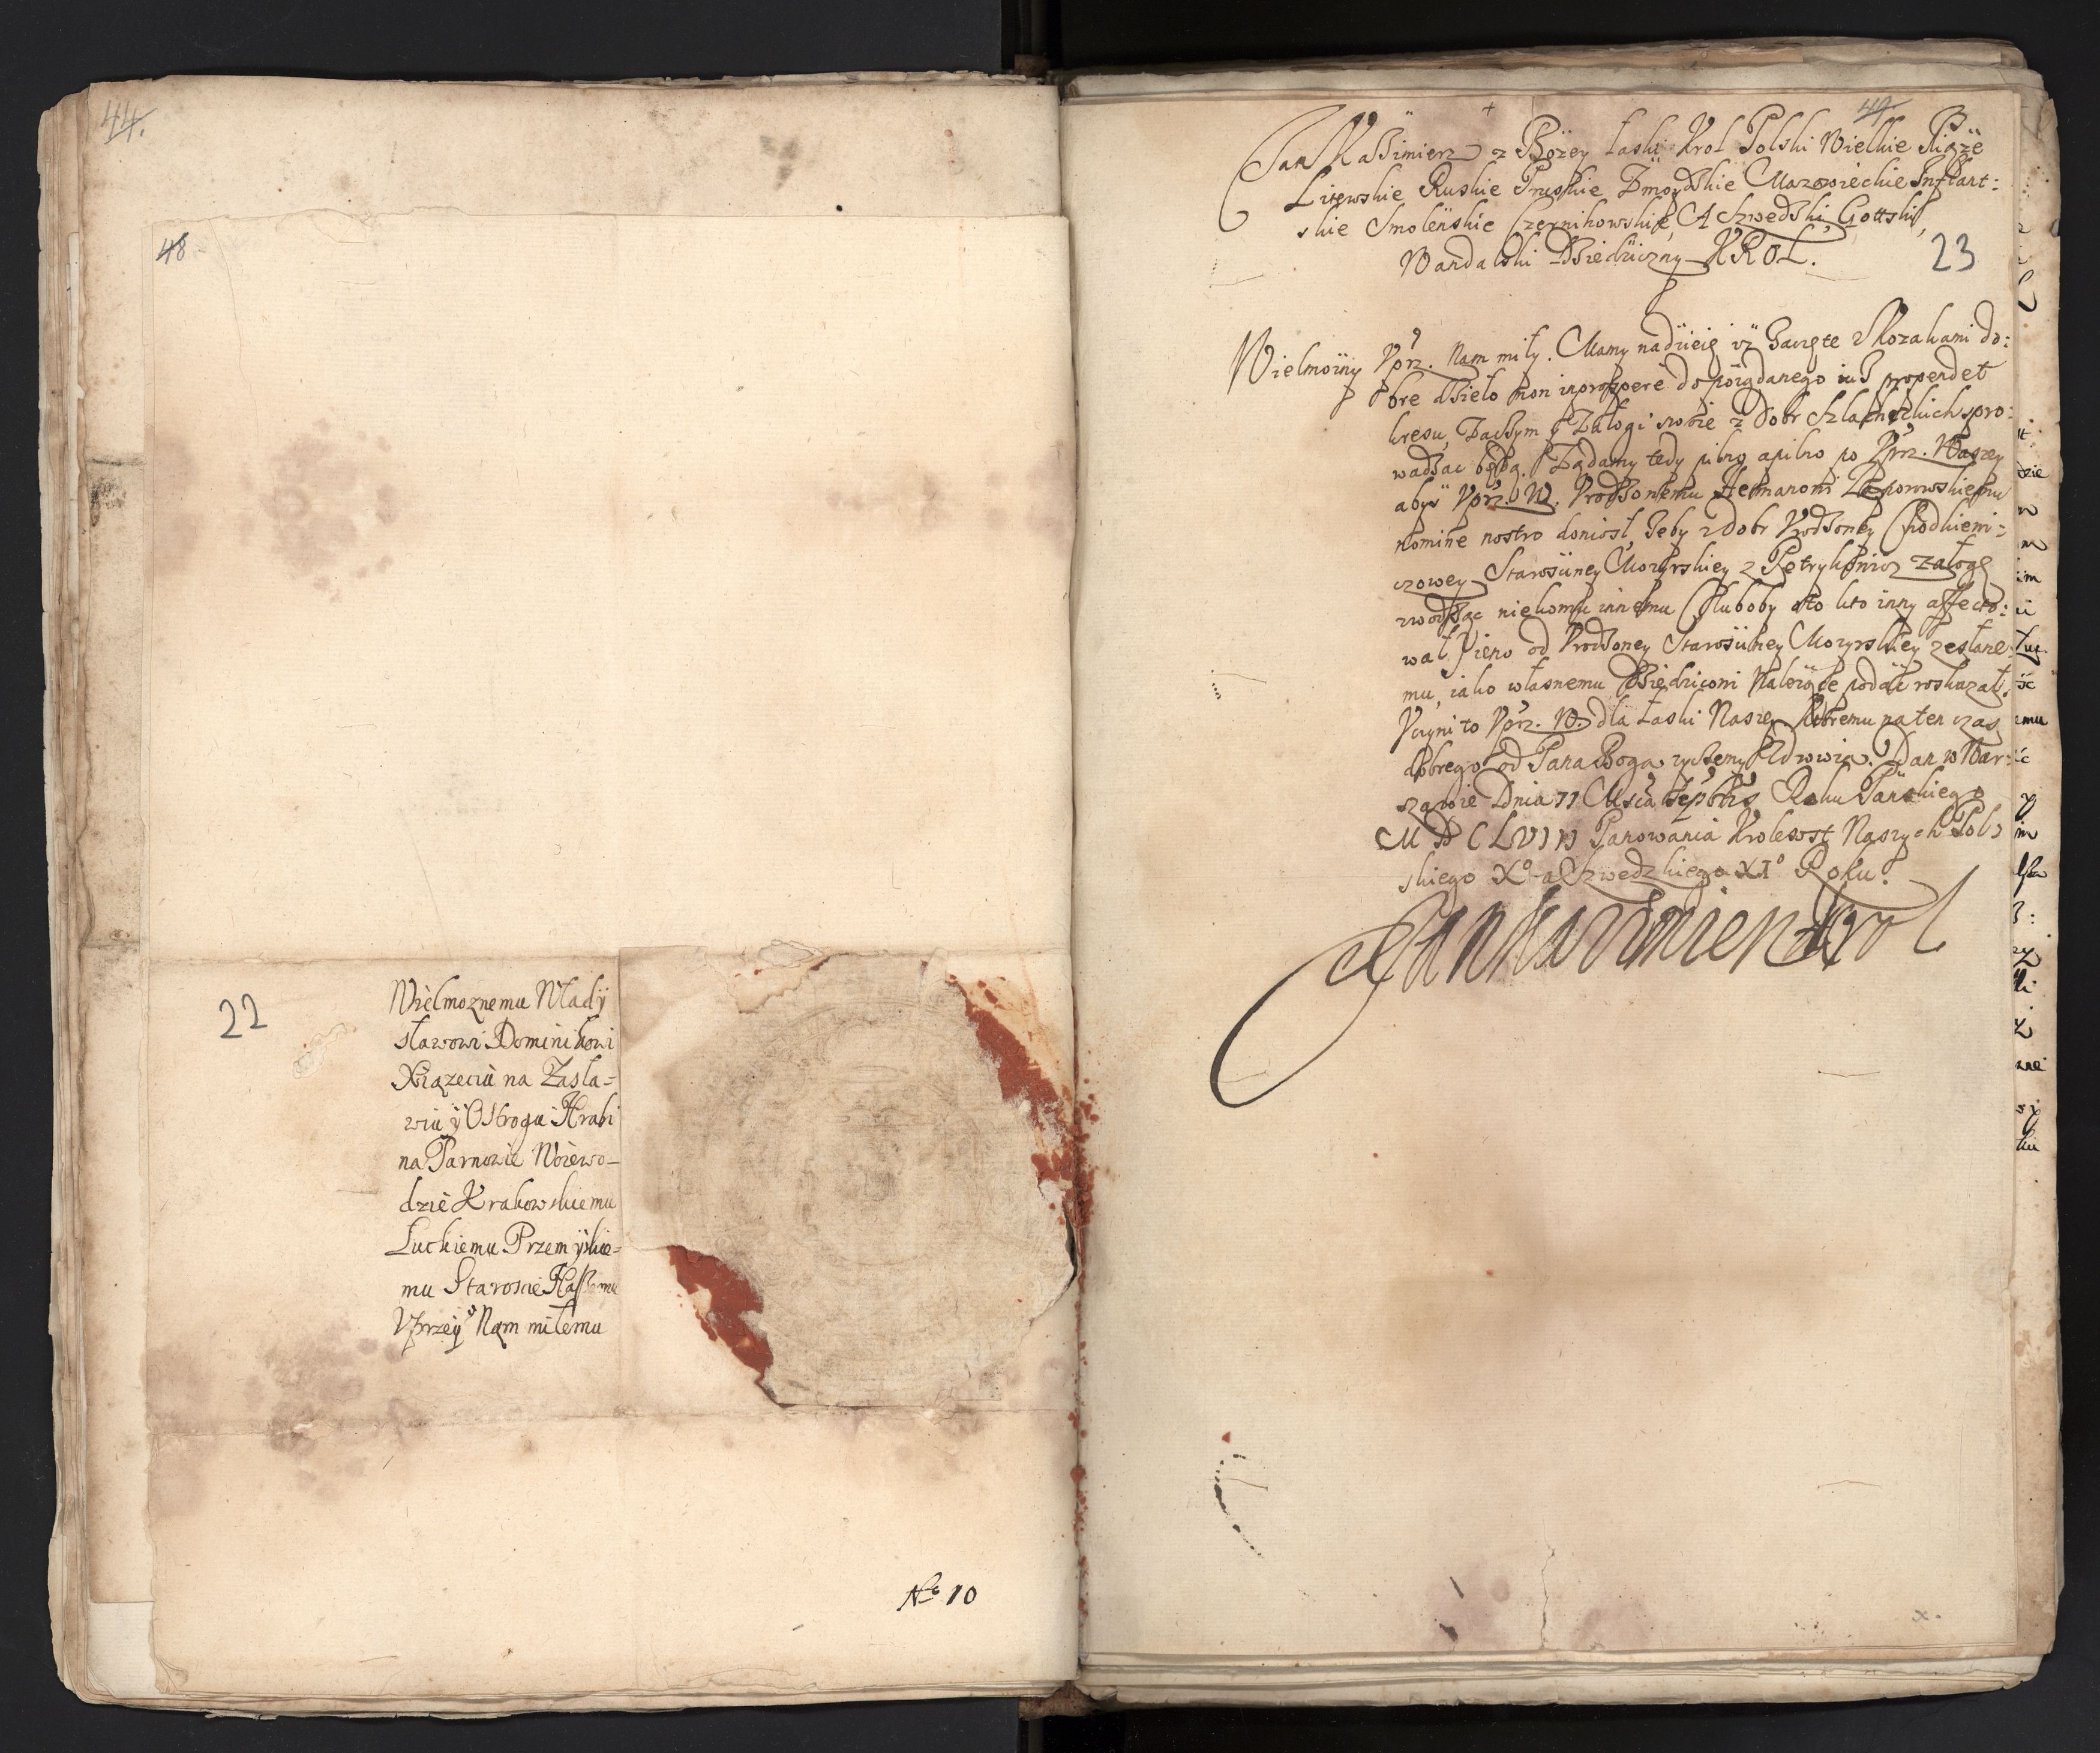 44.
48
22
Wielmoznemu Wlady
sławowi Dominikowi
Xiązeciu na Zasła=
wiu ÿ Ostrogu Hrabi
na Tarnowie Woiewo-
dzie Krakowskiemu
Łuckiemu Przemÿskie=
mu Staroscie
Vprzeÿ Nam miłemu
No 10
49.
Jan Kaźimierz z Bożey łaski Krol Polski Wielkie Xiąże
Litewskie Ruskie Pruskie Żmoydzkie Mazowieckie Inflant:
skie Smoleńskie Czernihowskie, A Szwedzki, Gottski,
Wandalski Dźiedźiczny KROL.
23
Wielmożny Vprz. Nam miły. Mamy nadźieię iż Zaczęte z Kozakami do:
bre dźieło non inprospere do pożądanego propendet
kresu, Zaczym y Załogi swoie z Dobr Szlacheckich spro:
wadzac będą. Żądamy tedy pilno apilno po Vprz. Waszey
abyś Vprz. W. Vrodzonemu Hetmanowi Zaporowskiemu
nomine nostro doniosł, Żeby z Dobr Vrodzoney Chodkiewi=
czowey Starośćiney Mozyrskiey z Petrykowicz załogę
zwodząc nikomu innemu (luboby kto inny affecto:
wał) ieno od Vrodzoney Starośćiney Mozyrskiey zesłane:
mu, iako własnemu Dźiedźicowi Maiętność podać roskazał.
Vczyni to Vprz. W. dla łaski Naszey. Ktoremu na ten czas
dobrego od Pana Boga zyczemy Zdrowia. Dan w War:
szawie Dnia 11 Msca 7bris Roku Pańskiego
M D C L V I I I Panowania Krolewst Naszych Pol:
skiego X° a Szwedzkiego XI° Roku.
Jan Kazimierz Krol